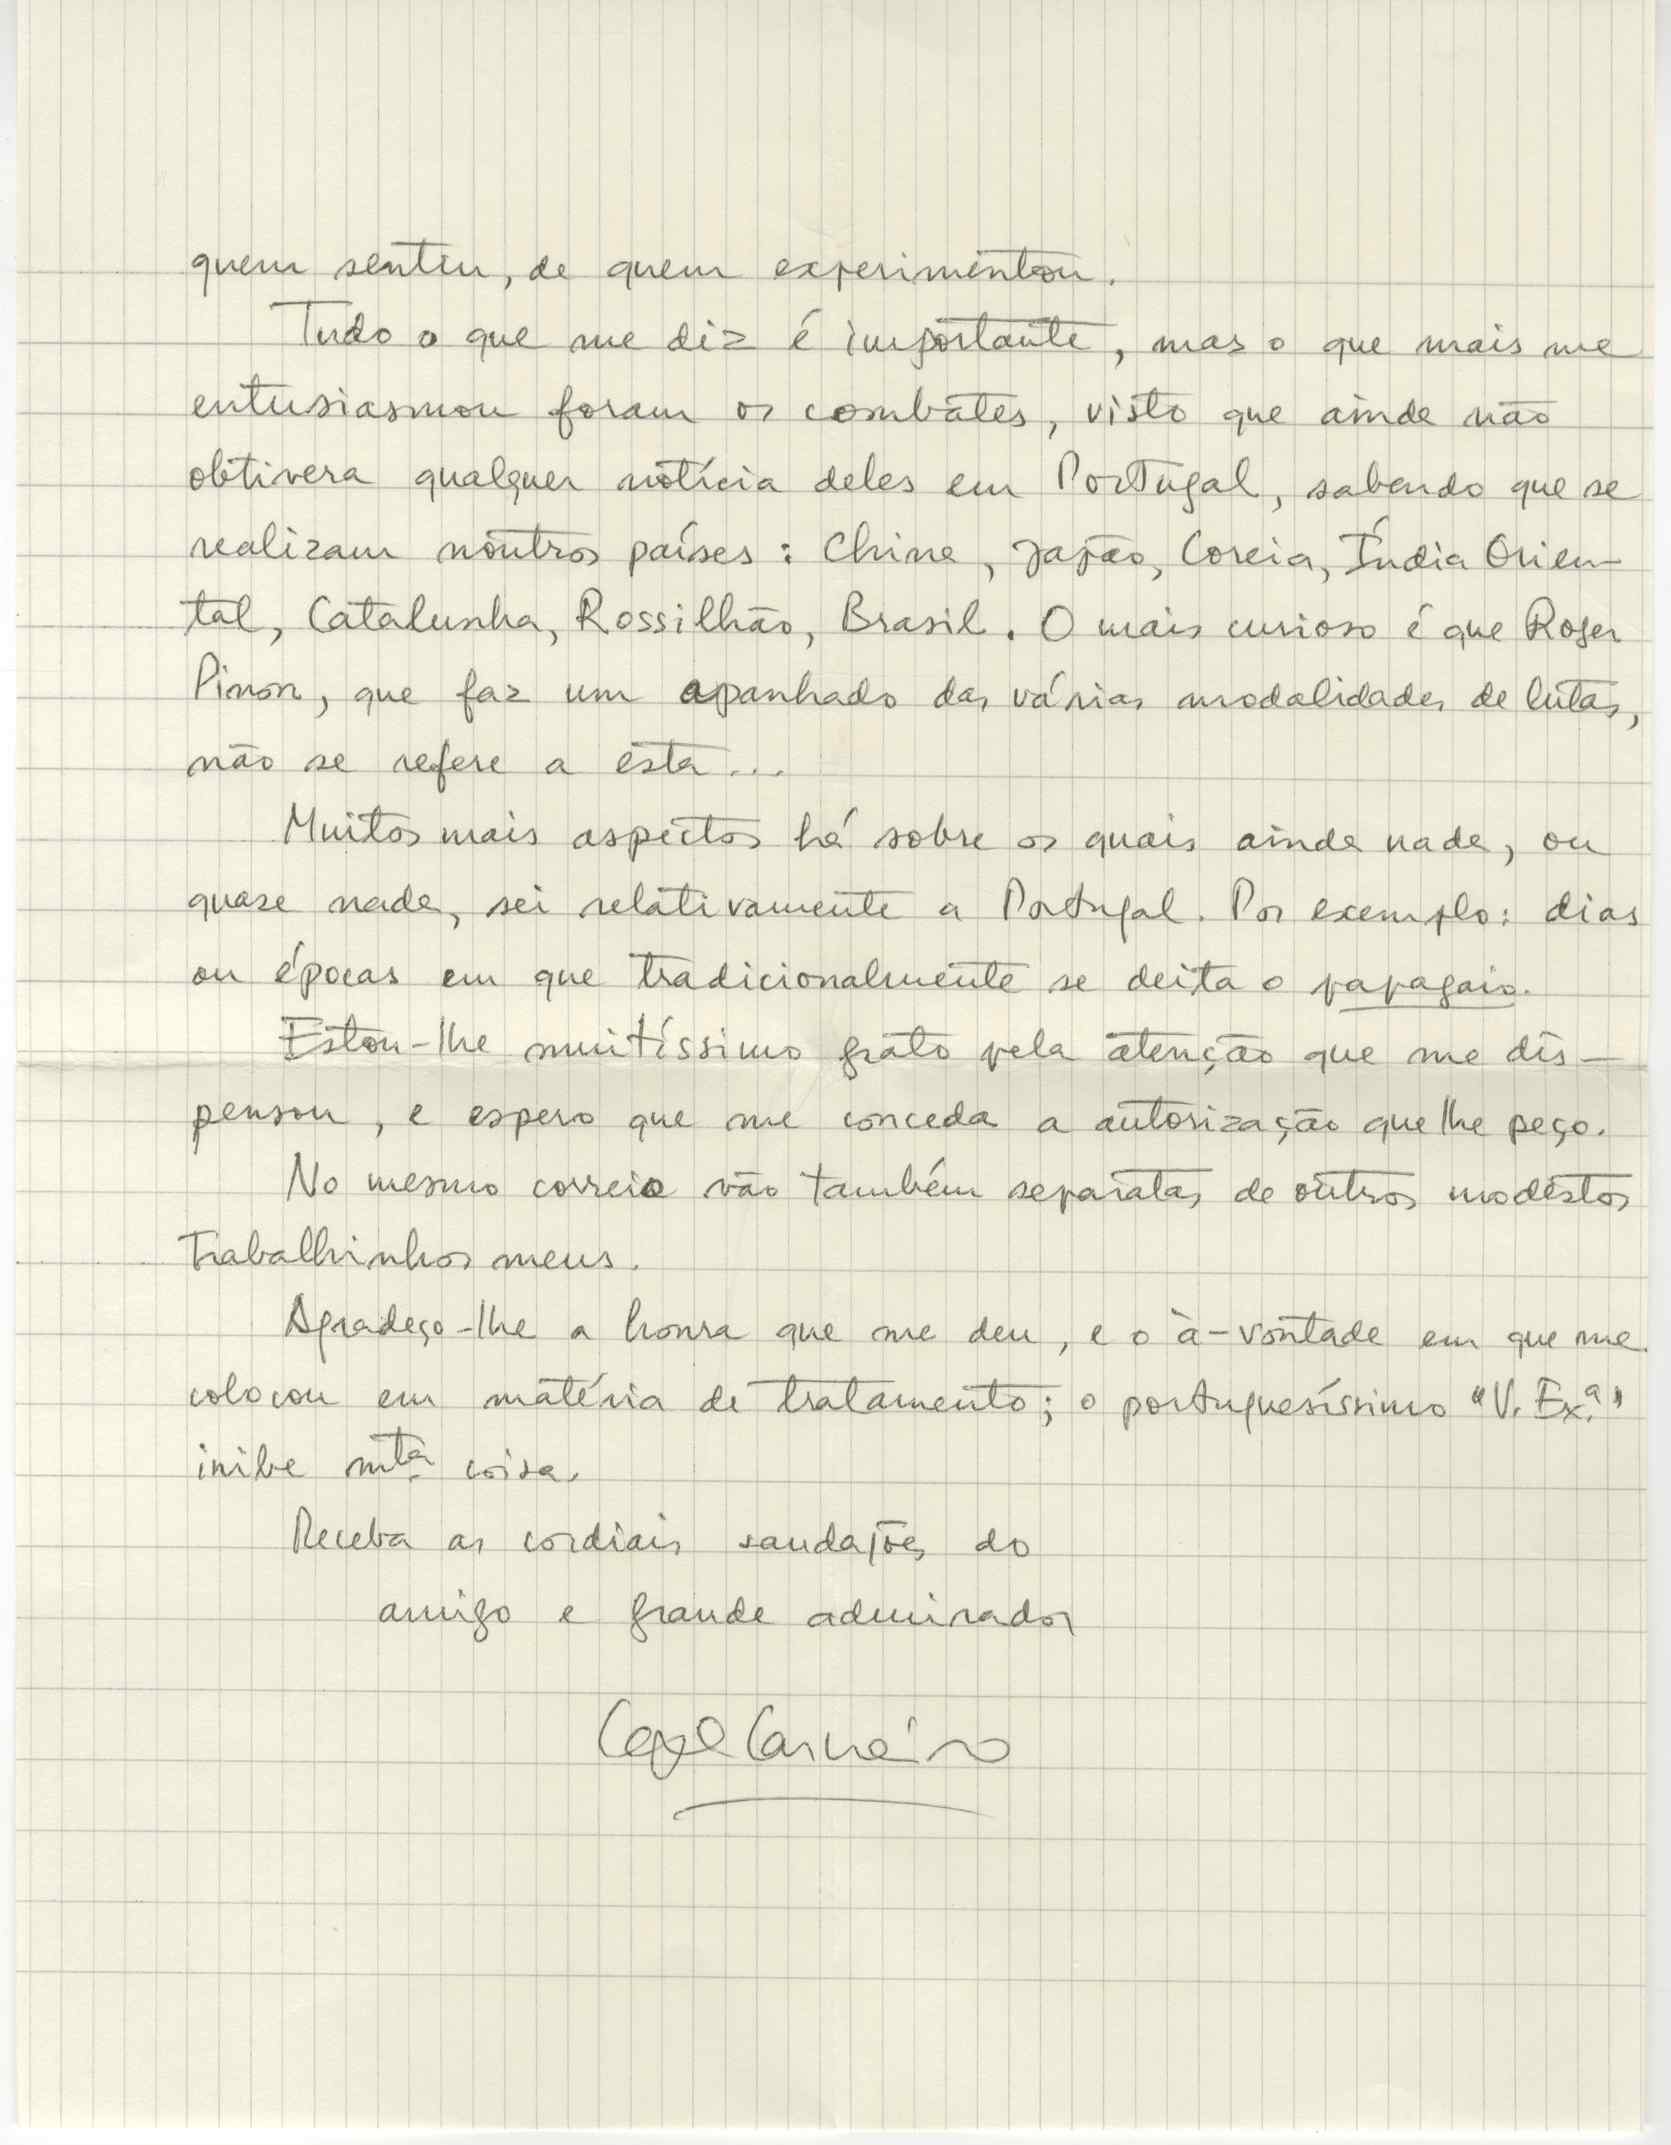 quem sentiu, de quem experimentou.
Tudo o que me diz é importante, mas o que mais me
entusiasmou foram os combates, visto que ainda não
obtivera qualquer notícia deles em Portugal, sabendo que se
realizam noutros países: China, Japão, Coreia, Índia Orien-
tal, Catalunha, Rossilhão, Brasil. O mais curioso é que Roger
Pinon, que faz um apanhado das várias modalidades de lutas,
não se refere a esta...
Muitos mais aspectos há sobre os quais ainda nada, ou
quase nada, sei relativamente a Portugal. Por exemplo: dias
ou épocas em que tradicionalmente se deita o papagaio.
Estou-lhe muitíssimo grato pela atenção que me dis-
pensou, e espero que me conceda a autorização que lhe peço.
No mesmo correio vão também separatas de outros modestos
trabalhinhos meus.
Agradeço-lhe a honra que me deu, e o à-vontade em que me
colocou em matéria de tratamento; o portuguesíssimo "V. Ex.ª"
inibe mta. coisa.
Receba as cordiais saudações do
amigo e grande admirador
Carneiro